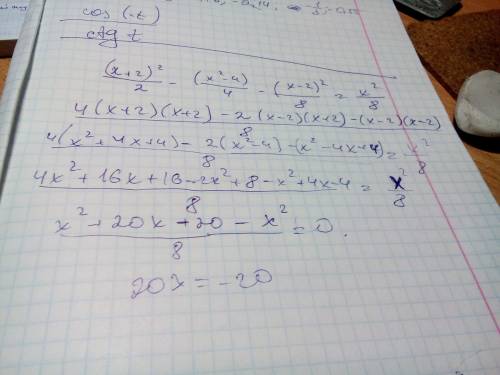 cos(-t)
ctg t
(x+2)²/2 - (x²-4)/4 - (x-2)²/8 = x²/8
4(x+2)(x+2) - 2(x-2)(x+2) - (x-2)(x-2)/8
4(x²+4x+4) - 2(x²-4) - (x²-4x+4)/8 = x²/8
4x²+16x+16-2x²+8-x²+4x-4/8 = x²/8
x²+20x+20-x²/8 = 0.
20x = -20